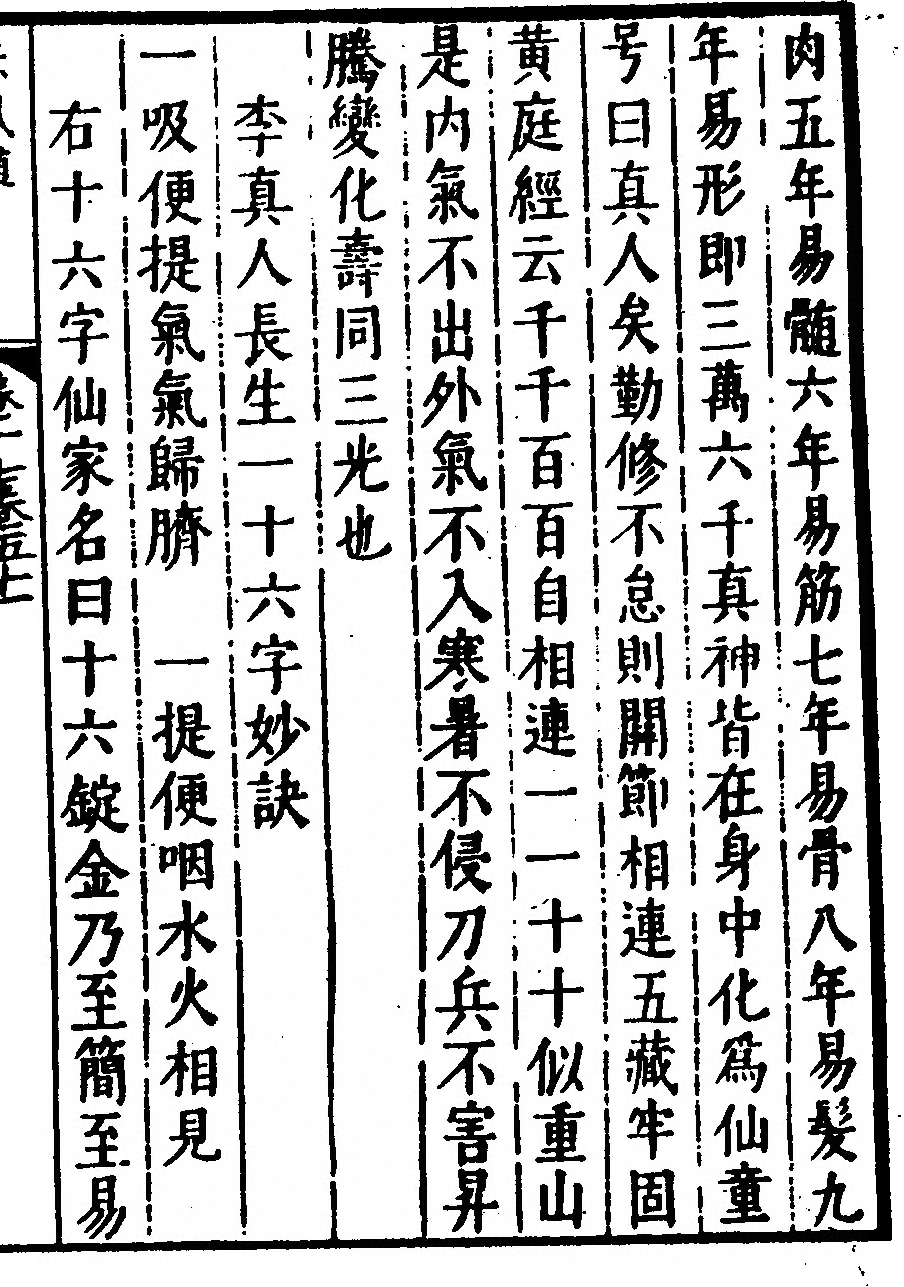 肉五年易髓六年易筋七年易骨八年易髮九
年易形即三萬六千真神皆在身中化爲仙童
号曰真人矣勤修不怠則關節相連五藏牢固
黄庭經云千千百百自相連一一十十似重山
是内氣不出外氣不入寒暑不侵刀兵不害昇
騰變化壽同三光也
李真人長生一十六字妙訣
一吸便提氣氣歸臍　一提便咽水火相見
右十六字仙家名曰十六錠金乃至簡至易